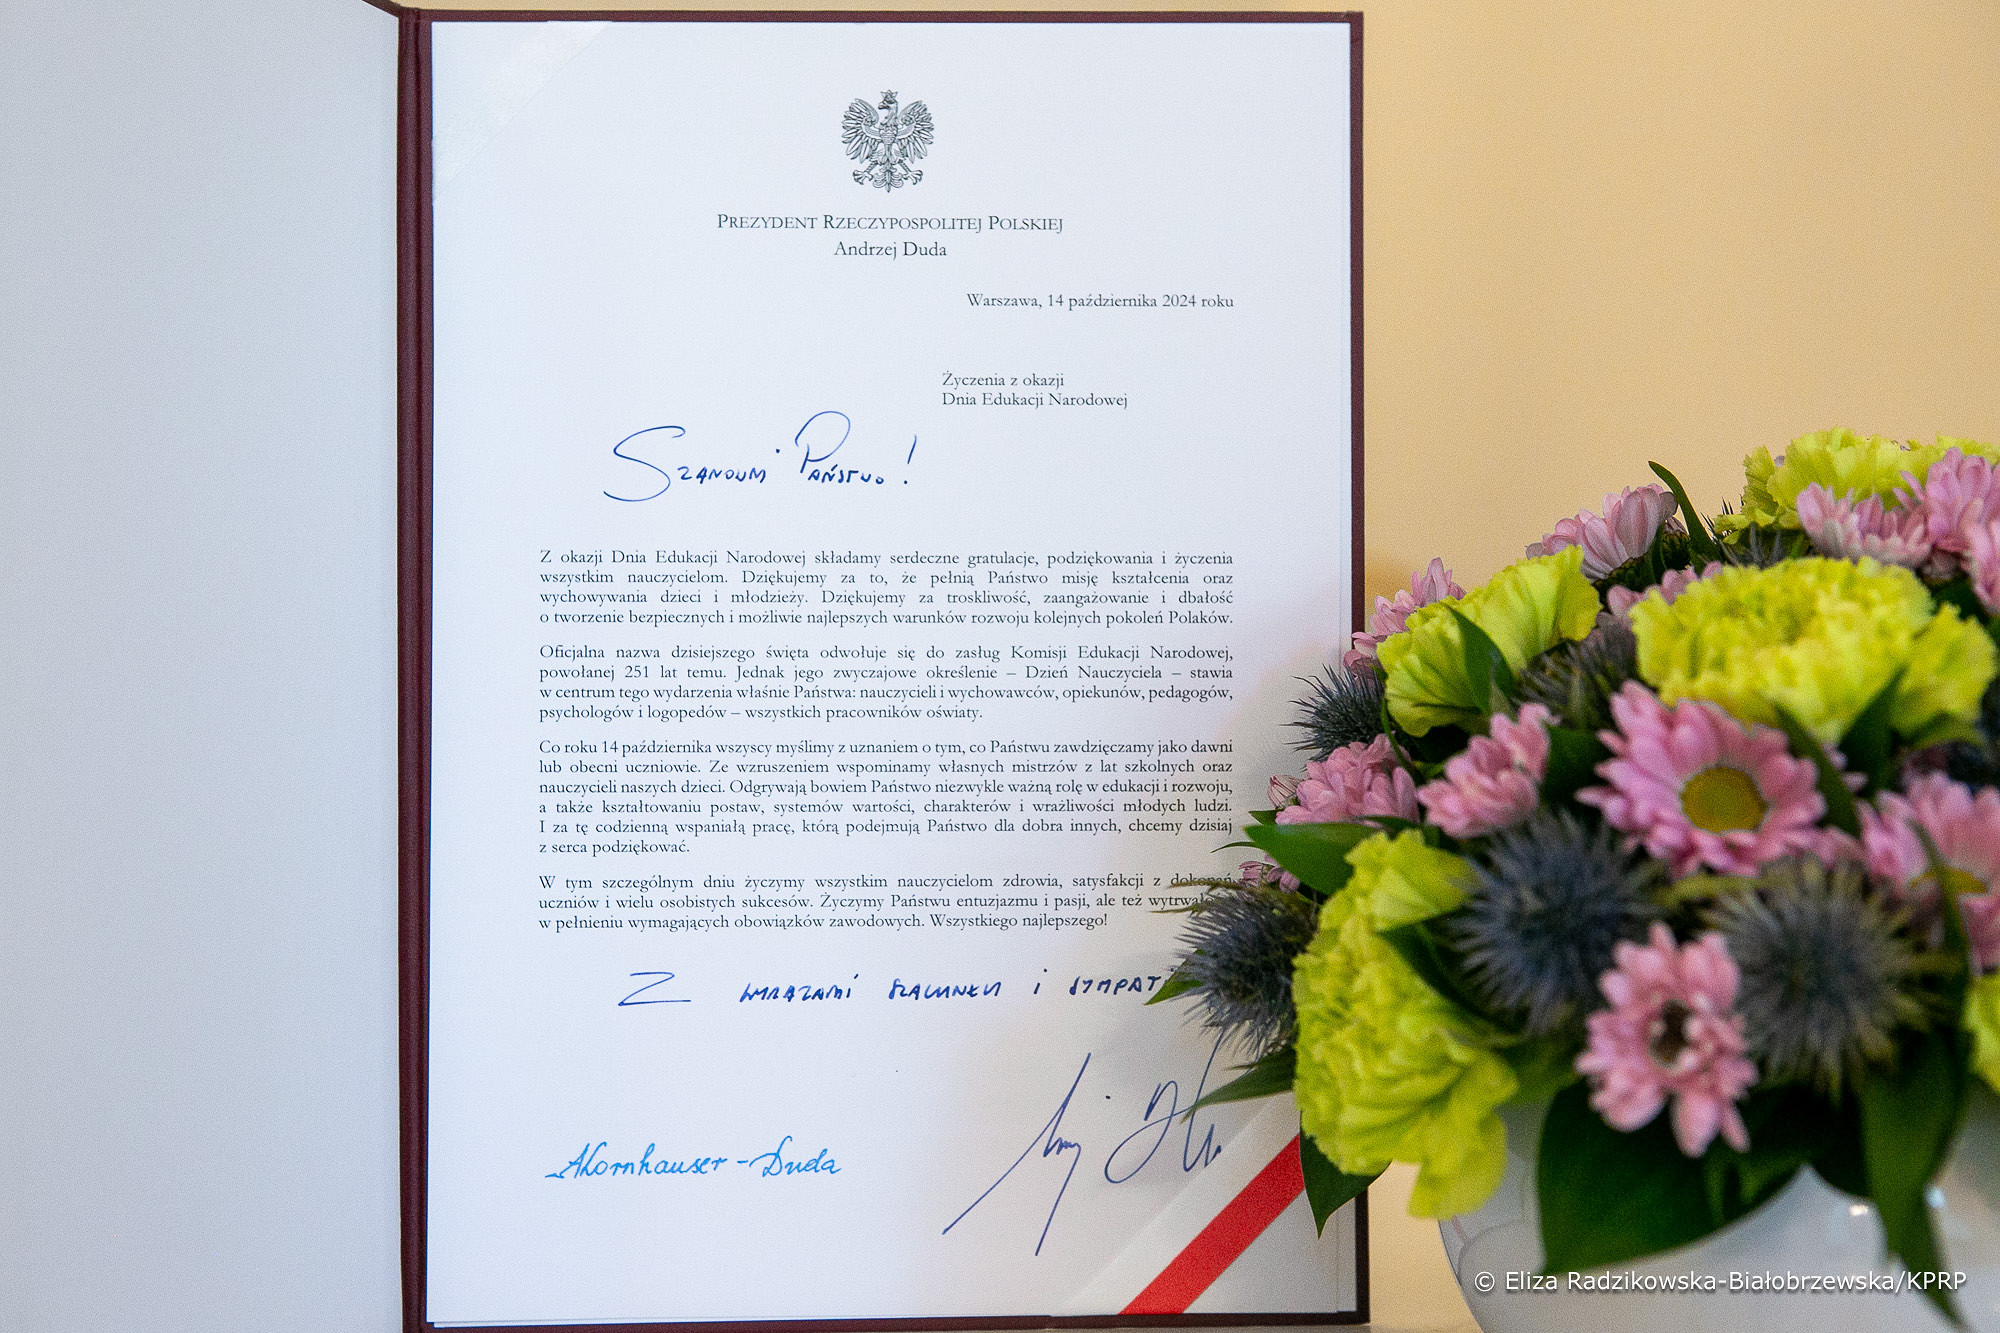 PREZYDENT RZECZYPOSPOLITEJ POLSKIEJ
Andrzej Duda
Warszawa, 14 października 2024 roku
Życzenia z okazji
Dnia Edukacji Narodowej
Szanowni Państwo!
Z okazji Dnia Edukacji Narodowej składamy serdeczne gratulacje, podziękowania i życzenia
wszystkim nauczycielom. Dziękujemy za to, że pełnią Państwo misję kształcenia oraz
wychowywania dzieci i młodzieży. Dziękujemy za troskliwość, zaangażowanie i dbałość
o tworzenie bezpiecznych i możliwie najlepszych warunków rozwoju kolejnych pokoleń Polaków.
Oficjalna nazwa dzisiejszego święta odwołuje się do zasług Komisji Edukacji Narodowej,
powołanej 251 lat temu. Jednak jego zwyczajowe określenie – Dzień Nauczyciela – stawia
w centrum tego wydarzenia właśnie Państwa: nauczycieli i wychowawców, opiekunów, pedagogów,
psychologów i logopedów – wszystkich pracowników oświaty.
Co roku 14 października wszyscy myślimy z uznaniem o tym, co Państwu zawdzięczamy jako dawni
lub obecni uczniowie. Ze wzruszeniem wspominamy własnych mistrzów z lat szkolnych oraz
nauczycieli naszych dzieci. Odgrywają bowiem Państwo niezwykle ważną rolę w edukacji i rozwoju,
a także kształtowaniu postaw, systemów wartości, charakterów i wrażliwości młodych ludzi.
I za tę codzienną wspaniałą pracę, którą podejmują Państwo dla dobra innych, chcemy dzisiaj
z serca podziękować.
W tym szczególnym dniu życzymy wszystkim nauczycielom zdrowia, satysfakcji z dokonań
uczniów i wielu osobistych sukcesów. Życzymy Państwu entuzjazmu i pasji, ale też
w pełnieniu wymagających obowiązków zawodowych. Wszystkiego najlepszego!
Z wyrazami szacunku i
AKornhauser-Duda
© Eliza Radzikowska-Białobrzewska/KPRP